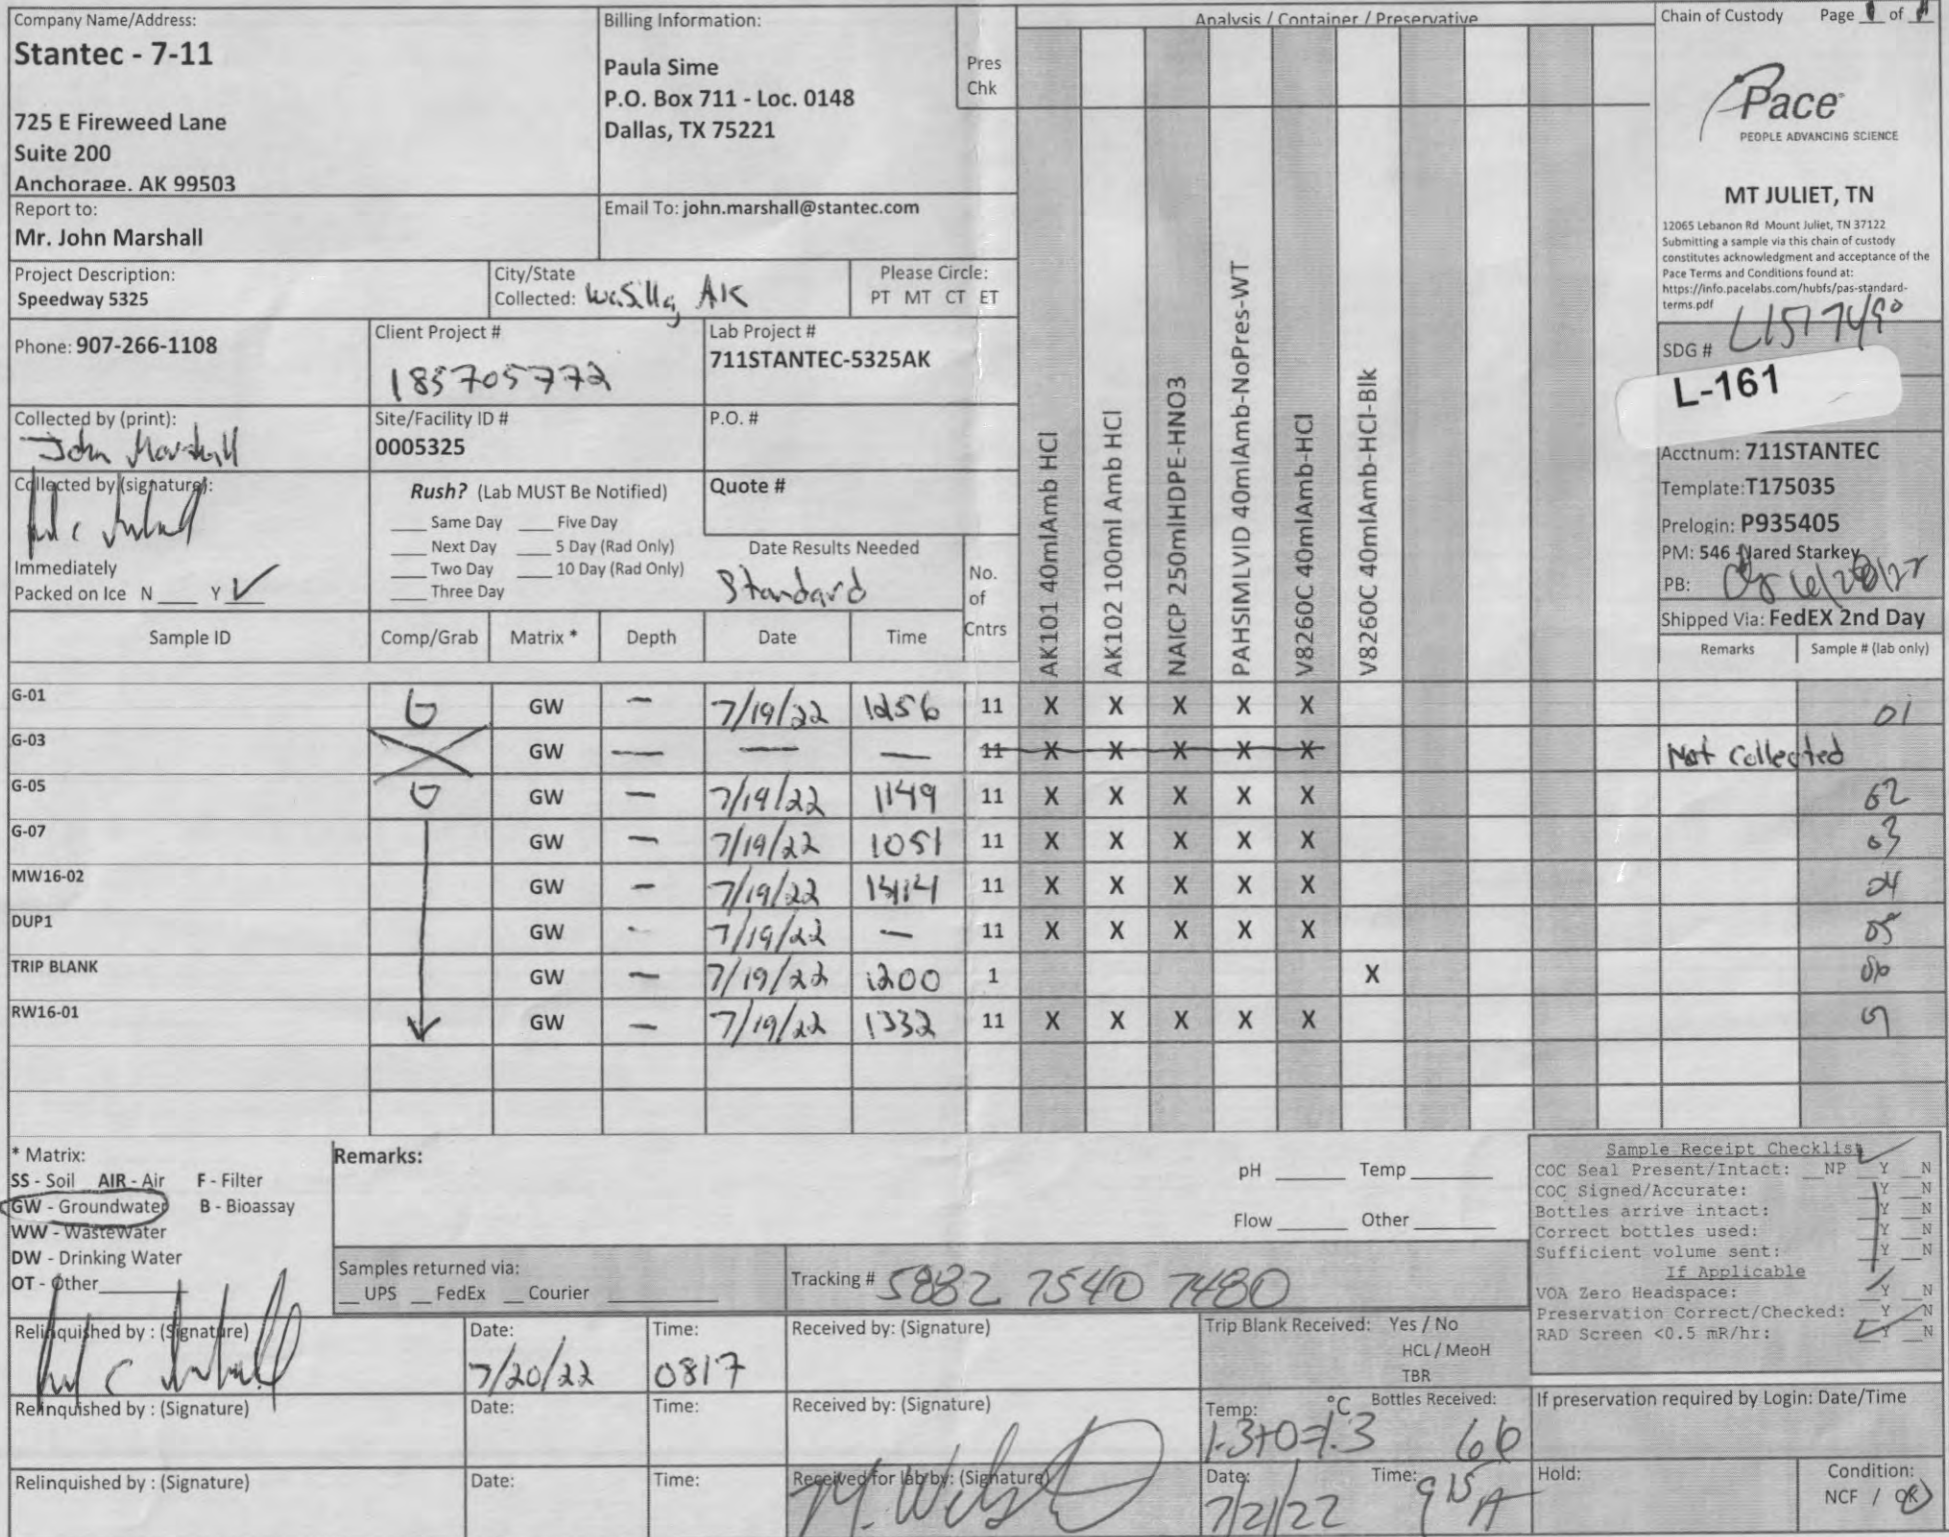 Company Name/Address:
Stantec - 7-11
725 E Fireweed Lane
Suite 200
Anchorage, AK 99503
Billing Information:
Paula Sime
P.O. Box 711 - Loc. 0148
Dallas, TX 75221
Pres
Chk
Analysis / Container / Preservative
Chain of Custody Page of
Pace
PEOPLE ADVANCING SCIENCE
MT JULIET, TN
12065 Lebanon Rd Mount Juliet, TN 37122
Submitting a sample via this chain of custody
constitutes acknowledgment and acceptance of the
Pace Terms and Conditions found at:
https://info.pacelabs.com/hubfs/pas-standard-
terms.pdf
Report to:
Mr. John Marshall
Email To: john.marshall@stantec.com
Project Description:
Speedway 5325
City/State
Collected: Wasilla, AK
Please Circle:
PT MT CT ET
Phone: 907-266-1108
Client Project #
185705772
Lab Project #
711STANTEC-5325AK
SDG # L1517490
L-161
Collected by (print):
John Marshall
Site/Facility ID #
0005325
P.O. #
Acctnum: 711STANTEC
Template: T175035
Prelogin: P935405
PM: 546 - Jared Starkey
PB: 6/28/22
Shipped Via: FedEX 2nd Day
Collected by (signature):
Immediately
Packed on Ice N ___ Y ✓
Rush? (Lab MUST Be Notified)
___ Same Day ___ Five Day
___ Next Day ___ 5 Day (Rad Only)
___ Two Day ___ 10 Day (Rad Only)
___ Three Day
Quote #
Date Results Needed
Standard
No.
of
Cntrs
AK101 40mlAmb HCl
AK102 100ml Amb HCl
NAICP 250mlHDPE-HNO3
PAHSIMLVID 40mlAmb-NoPres-WT
V8260C 40mlAmb-HCl
V8260C 40mlAmb-HCl-Blk
Sample ID Comp/Grab Matrix * Depth Date Time Remarks Sample # (lab only)
G-01 G GW — 7/19/22 1256 11 X X X X X 01
G-03 GW — — — 11 X X X X X Not Collected
G-05 G GW — 7/19/22 1149 11 X X X X X 02
G-07 GW — 7/19/22 1051 11 X X X X X 03
MW16-02 GW — 7/19/22 1414 11 X X X X X 04
DUP1 GW - 7/19/22 — 11 X X X X X 05
TRIP BLANK GW — 7/19/22 1200 1 X 06
RW16-01 GW — 7/19/22 1332 11 X X X X X 07
* Matrix:
SS - Soil AIR - Air F - Filter
GW - Groundwater B - Bioassay
WW - WasteWater
DW - Drinking Water
OT - Other
Remarks:
pH ___ Temp ___
Flow ___ Other ___
Samples returned via:
__ UPS __ FedEx __ Courier
Tracking # 5882 7540 7480
Sample Receipt Checklist
COC Seal Present/Intact: __NP Y N
COC Signed/Accurate: Y N
Bottles arrive intact: Y N
Correct bottles used: Y N
Sufficient volume sent: Y N
If Applicable
VOA Zero Headspace: Y N
Preservation Correct/Checked: Y N
RAD Screen <0.5 mR/hr: Y N
Relinquished by : (Signature)
Date:
7/20/22
Time:
0817
Received by: (Signature)
Trip Blank Received: Yes / No
HCL / MeoH
TBR
Relinquished by : (Signature)
Date:
Time:
Received by: (Signature)
Temp: °C
1.3+0=1.3
Bottles Received:
66
If preservation required by Login: Date/Time
Relinquished by : (Signature)
Date:
Time:
Received for lab by: (Signature)
Date:
7/21/22
Time:
915A
Hold:
Condition:
NCF / OK